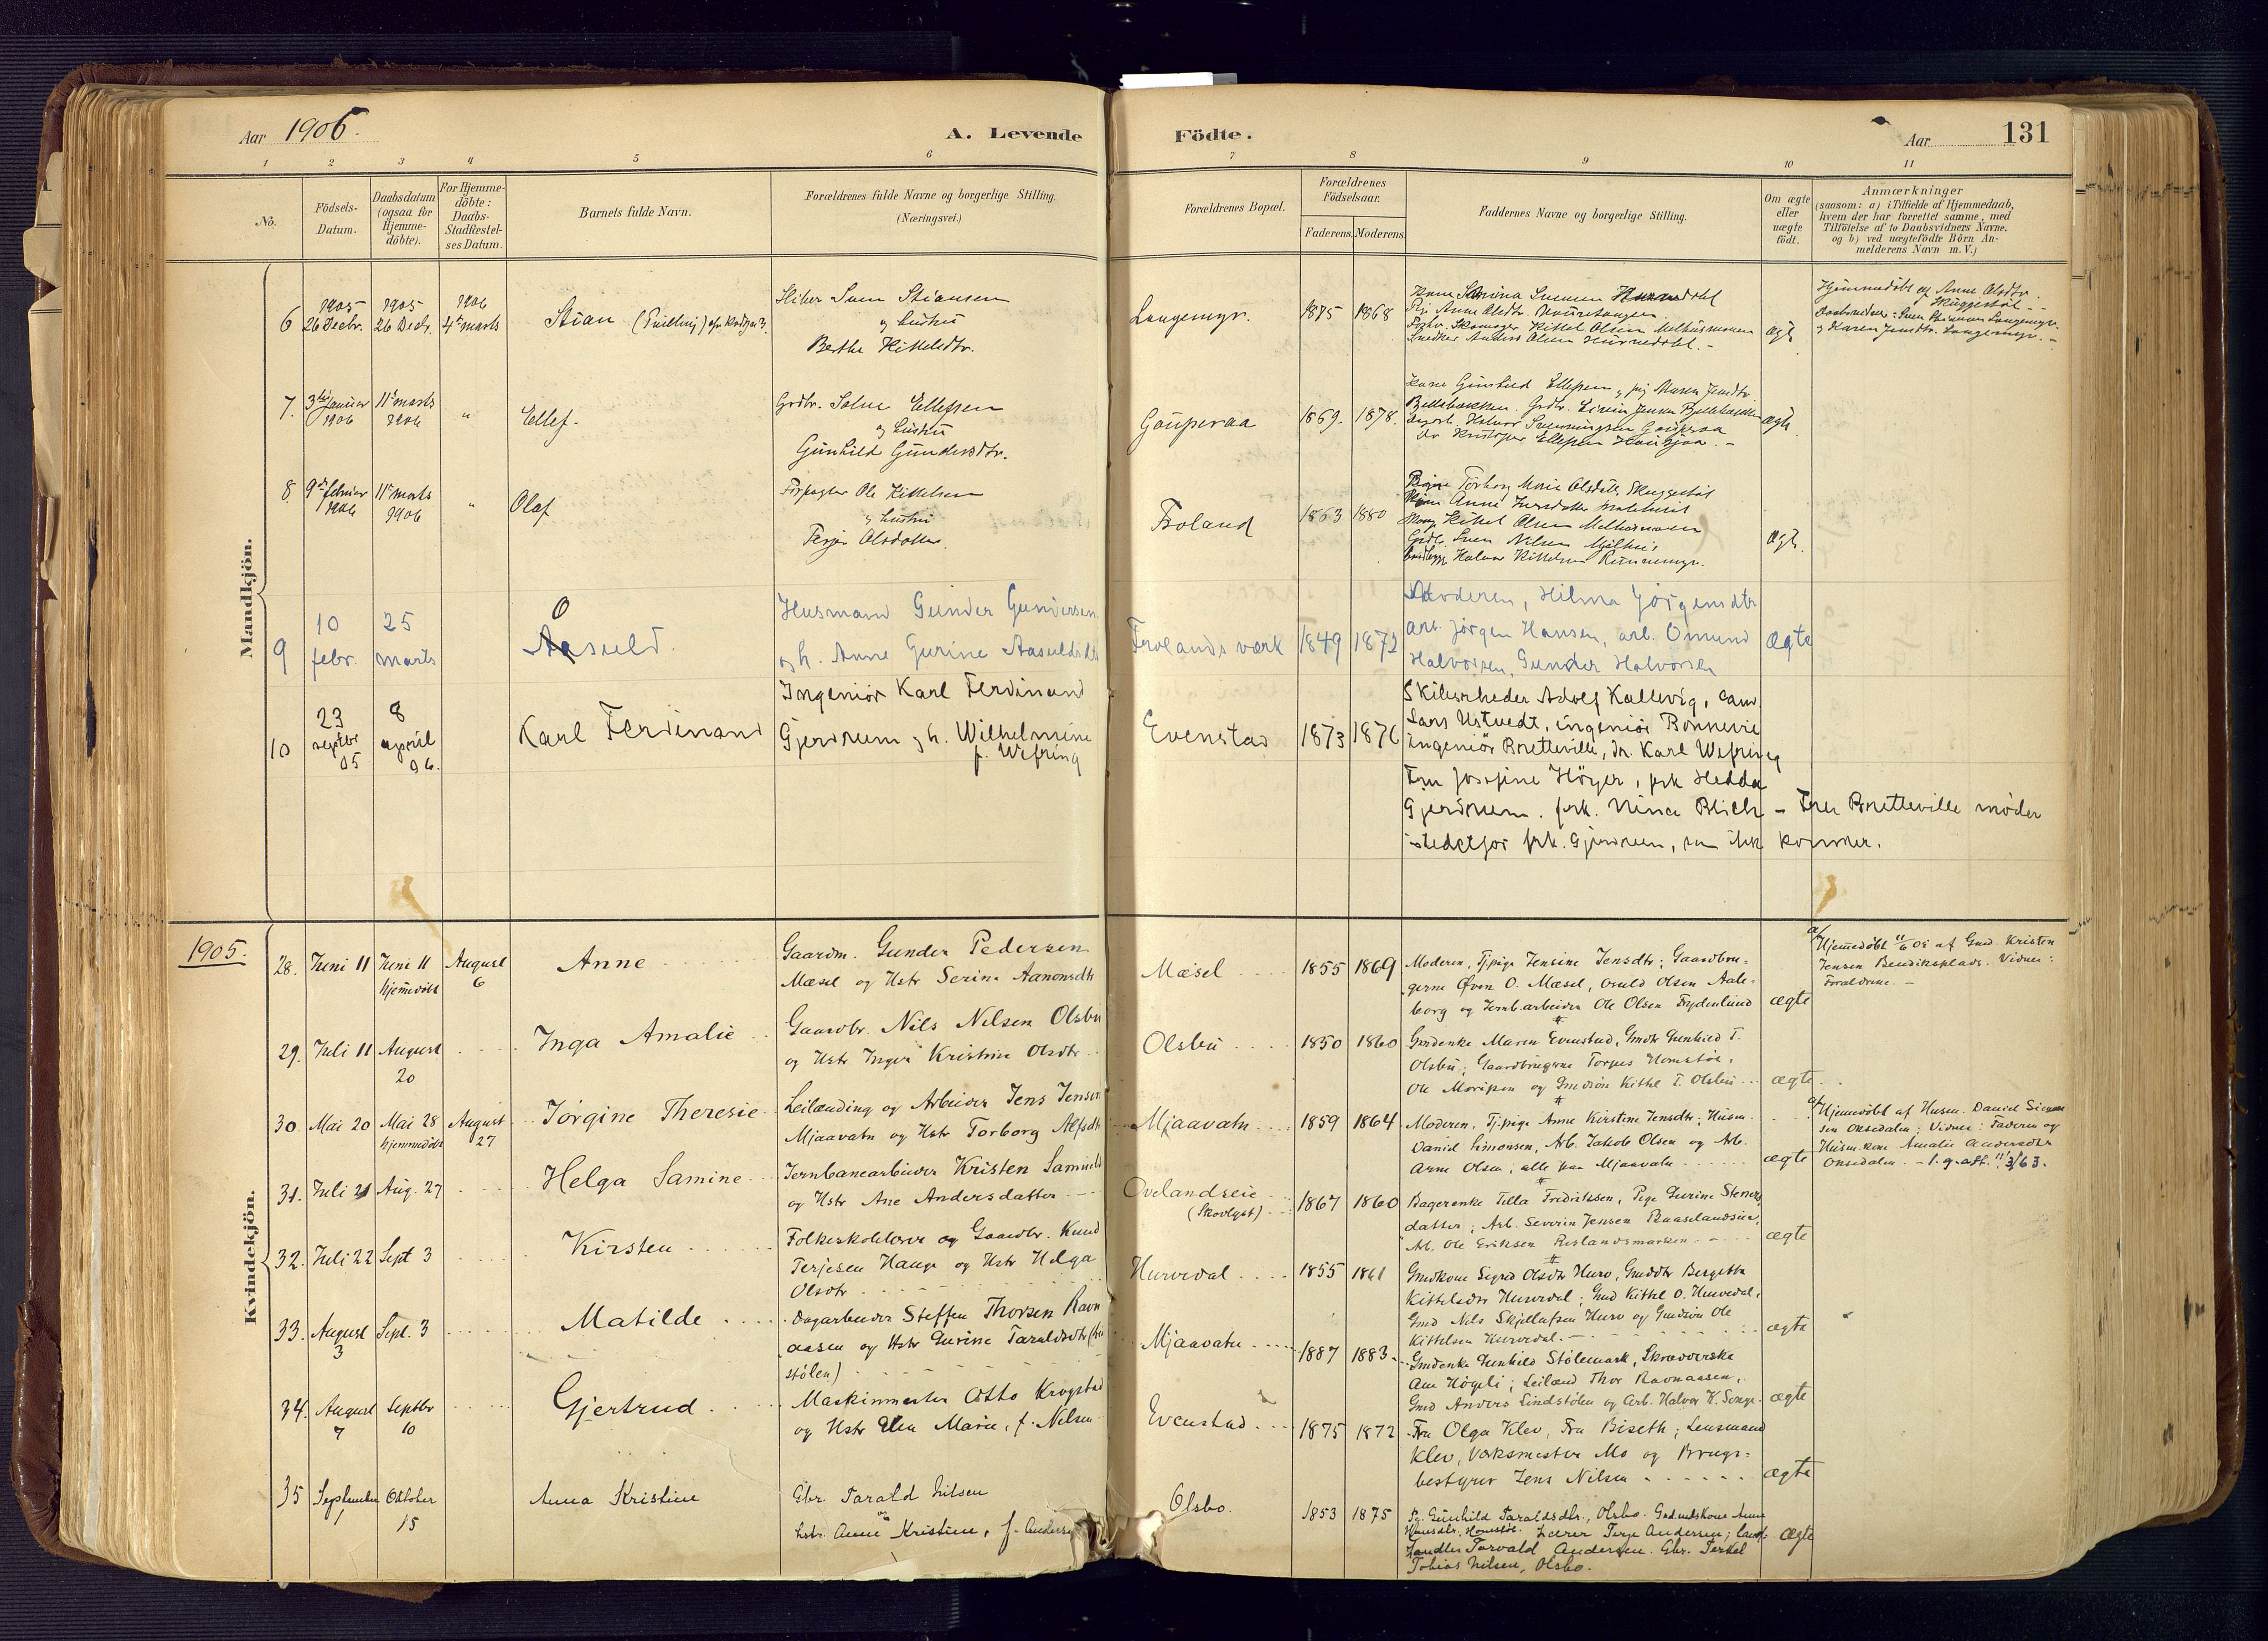 Aar 1906.
A. Levende
Födte.
Aar
131
1 2 3 4 5 6 7 8 9 10 11
No.
Födsels-
Datum.
Daabsdatum
(ogsaa for
Hjemme-
döbte).
For Hjemme-
döbte:
Daabs-
Stadfæstel-
ses Datum.
Barnets fulde Navn.
Forældrenes fulde Navne og borgerlige Stilling.
(Næringsvei.)
Forældrenes Bopæl.
Forældrenes
Födselsaar.
Faderens. Moderens.
Faddernes Navne og borgerlige Stilling.
Om ægte
eller
uægte
födt.
Anmærkninger
(saasom: a) i Tilfælde af Hjemmedaab,
hvem der har forrettet samme, med
Tilföielse af to Daabsvidners Navne.
og b) ved uægtefödte Börn An-
melderens Navn m. V.)
Mandkjön.
6 1905 26 Decbr. 1905 26 Decbr. 1906 4de marts
Stian
Sven Stiansen
og hustru
Berthe Kittelsdtr.
Langemyr. 1875 1868
Pige Anne Olsdtr.
Skomager Kittel Olsen Melhusmoen
Snedker Anders Olsen Hurvedal. -
ægte
Hjemmedöbt af Anne Olsdtr.
Skuggestöl
Daabsvidner: Sven Stiansen Langemyr.
og Karen Jensdtr. Langemyr. -
7. 3die januar 1906 11te marts 1906 "
Ellef.
Grdbr. Salve Ellefsen
og hustru
Gunhild Gundersdtr.
Gauperaa 1869. 1878.
Kone Gunhild Ellefsen, pig Maren Jensdtr.
ægte
8. 9de februar 1906 11te marts 1906 "
Olaf
Forpagter Ole Kittelsen
og hustru
Terjer Olsdatter.
Froland 1863 1880
Torborg Marie Olsdtr. Skuggestöl
Kittel Olsen Melhusmoen
Grdbr. Sven Nilsen Mjelhus
Halvor Kittelsen Runnemyr.
ægte.
9 10 febr. 25 marts
Osuld.
Husmand Gunder Gundersen
og h. Anne Gurine Aasuldsdtr
Frolands værk 1849 1872
Moderen, Hilma Jörgensdtr
arb. Jörgen Hansen, arb. Omund
Halvorsen, Gunder Halvorsen
ægte
10 23 septbr 05 8 april 06.
Karl Ferdinand
Ingeniör Karl Ferdinand
Gjerdrum og h. Wilhelmine
f. Wefring
Evenstad 1873 1876
Skibsrheder Adolf Kallevig, cand.
Lars Ustvedt, ingeniör Bonnevie
ingeniör Bretteville, dr. Karl Wefring
Fru Josefine Höyer, frk Hedda
Gjerdrum. frk. Nina Blich - Fru Bretteville möder
istedetfor frk. Gjerdrum, som ikke kommer.
1905.
Kvindekjön.
28. Juni 11 Juni 11 hjemmedöbt August 6
Anne
Gaardm. Gunder Pedersen
Mæsel og Hstr Serine Aanonsdtr
Mæsel 1855 1869
Moderen, Tj.pige Jensine Jensdtr; Gaardbru-
gerne Öven O. Mæsel, Osuld Olsen Aale-
borg og Jernb.arbeider Ole Olsen Frydenlund
ægte
a/ Hjemmedöbt 11/6 05 af Gmd. Kristen
Jensen Bendiksplads. Vidner:
Forældrene. -
29. Juli 11 August 20
Inga Amalie
Gaardbr. Nils Nilsen Olsbu
og Hstr Inger Kristine Olsdtr
Olsbu 1850 1860
Gmdenke Maren Evenstad, Gmdtr Gunhild T.
Olsbu; Gaardbrugerne Torjus Homstöl,
Ole Morisen og Gmdsön Kittel T. Olsbu
ægte
30. Mai 20 Mai 28 hjemmedöbt August 27
Jörgine Theresie
Leilænding og Arbeider Jens Jensen
Mjaavatn og Hstr Torborg Alfsdtr
Mjaavatn 1859 1864
Moderen, Tj.pige Anne Kirstine Jensdtr; Husm.
Daniel Simonsen, Arb. Jakob Olsen og Arb.
Arne Olsen; alle paa Mjaavatn
ægte
a/ Hjemmedöbt af Husm. Daniel Simon-
sen Oksedalen; Vidner: Faderen og
Husm.kone Amalie Andersdtr
Oksedalen. - l.g.att. 11/3/63.
31. Juli 21 Aug. 27
Helga Samine
Jernbanearbeider Kristen Samuels
og Hstr Ane Andersdatter
Ovelandseie
(Skovlyst) 1867 1860
Bagerenke Tilla Fredriksen, Pige Gurine Steners
datter; Arb. Severin Jensen Baaselandseie,
Arb. Ole Eriksen Rislandsmarken.
ægte
32. Juli 22 Sept 3
Kirsten
Folkeskolelærer og Gaardbr. Knud
Terjesen Hauge og Hstr Helga
Olsdtr
Hurvedal 1855 1861
Gmdkone Sigrid Olsdtr Hurv, Gmddtr Bergitta
Kittelsdtr Hurvedal; Gmd Kittel O. Hurvedal,
Gmd Nils Skjellufsen Hurv og Gmdsön Ole
Kittelsen Hurvedal.
ægte
33. August 3 Sept. 3
Matilde
Dagarbeider Steffen Thorsen Ravn
aasen og Hstr Gurine Taraldsdtr
stölen)
Mjaavatn 1887 1883.
Gmdenke Gunhild Stölemark, Skrædderske
Ane Högeli; Leilænd Thor Ravnaasen,
Gmd Anders Lindstölen og Arb. Halvor K. Songe
ægte
34. August 7 Septbr 10
Gjertrud
Maskinmester Otto Krogstad
og Hstr Elen Marie, f. Nilsen
Evenstad 1875 1872
Fru Olga Klev, Fru Biseth; Lensmand
Klev, Værksmester Mo og Brugs-
bestyrer Jens Nilsen
ægte
35 September 1 Oktober 15
Anna Kristine
Gbr. Tarald Nilsen
og
hstr. Anne Kristine, f. Anders
Olsbo. 1853 1875
Pg. Gunhild Taraldsdtr., Olsbo. Gaardmdskone Anne
Hansdtr., Homstöl. Lærer Terje Andersen; Land-
handler Torvald Andersen. Gbr. Terkel
Tobias Nilsen, Olsbo.
ægte